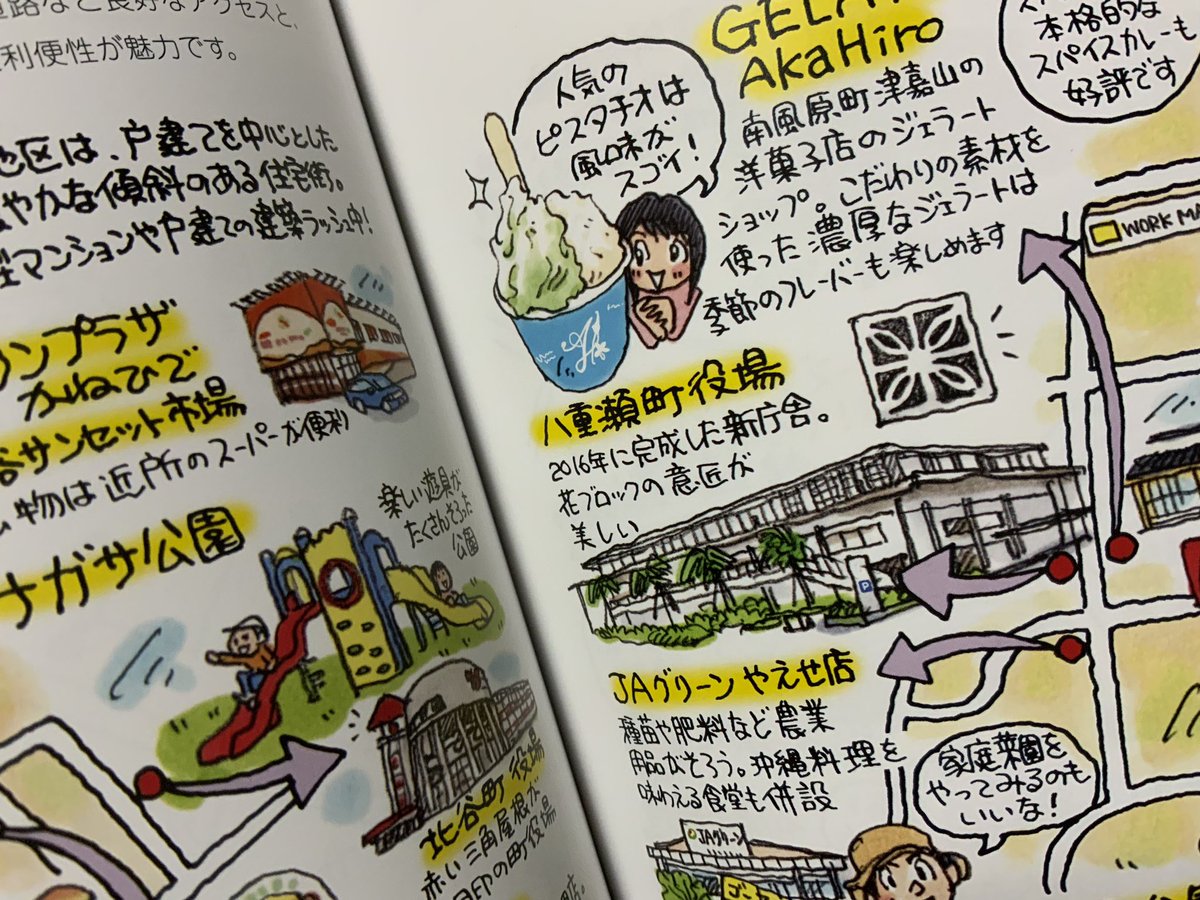 良好なアクセスと、
利便性が魅力です。
区は、戸建てを中心とした
やかな傾斜のある住宅街。
マンションや戸建ての建築ラッシュ中!
ンプラザ
かねひで
谷サンセット市場
物は近所のスーパーが便利
ナガサ公園
楽しい遊具が
たくさんそろった
公園
北谷町役場
赤い三角屋根が
目印の町役場
GELA
AkaHiro
人気の
ピスタチオは
風味が
スゴイ!
南風原町津嘉山の
洋菓子店のジェラート
ショップ。こだわりの素材を
使った濃厚なジェラートは
季節のフレーバーも楽しめます
本格的な
スパイスカレーも
好評です
WORK M
八重瀬町役場
2016年に完成した新庁舎。
花ブロックの意匠が
美しい
P
JAグリーンやえせ店
種苗や肥料など農業
用品がそろう。沖縄料理を
味わえる食堂も併設
家庭菜園を
やってみるのも
いいな!
JAグリーン